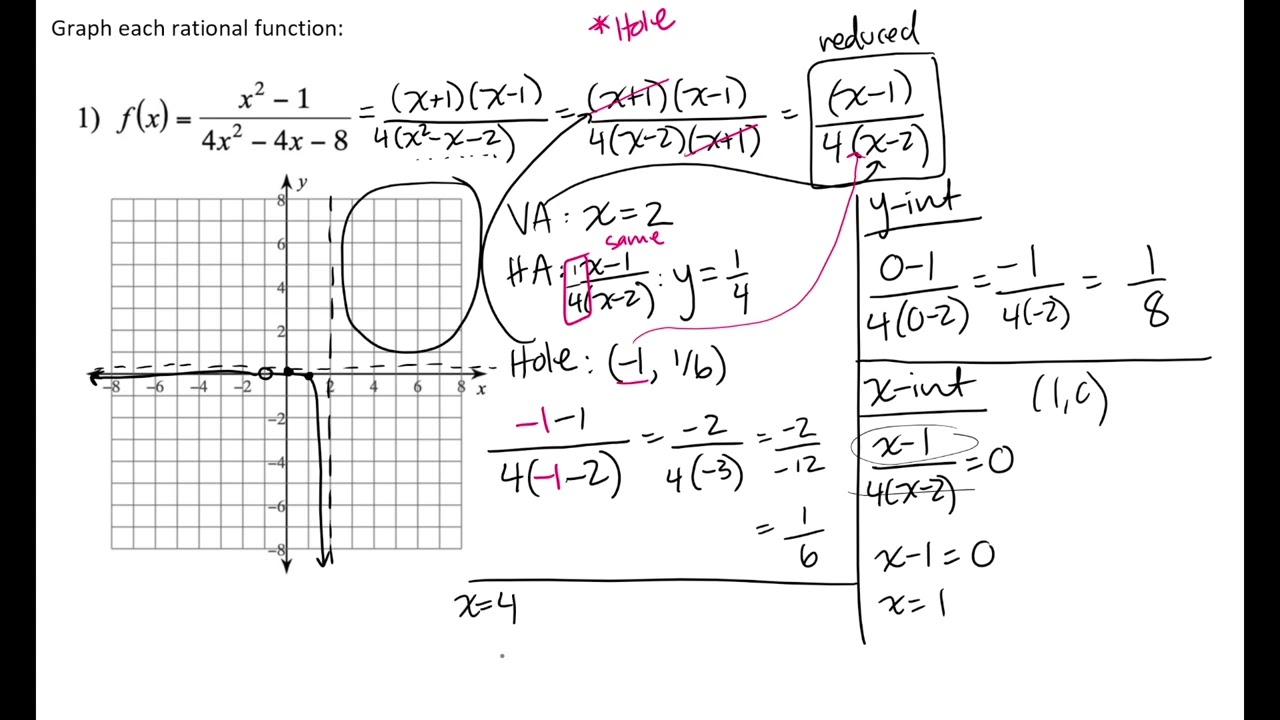 Graph each rational function:
*Hole
reduced
1) f(x) = (x² − 1)/(4x² − 4x − 8) = (x+1)(x−1)/4(x²−x−2) = (x+1)(x−1)/4(x−2)(x+1) = (x−1)/4(x−2)
y
8
6
4
2
−8 −6 −4 −2 2 4 6 8 x
−2
−4
−6
−8
VA: x=2
same
HA: 1x−1/4(x−2) : y = 1/4
Hole: (−1, 1/6)
−1−1/4(−1−2) = −2/4(−3) = −2/−12
= 1/6
x=4
y-int
0−1/4(0−2) = −1/4(−2) = 1/8
x-int (1,0)
x−1/4(x−2) = 0
x−1=0
x=1